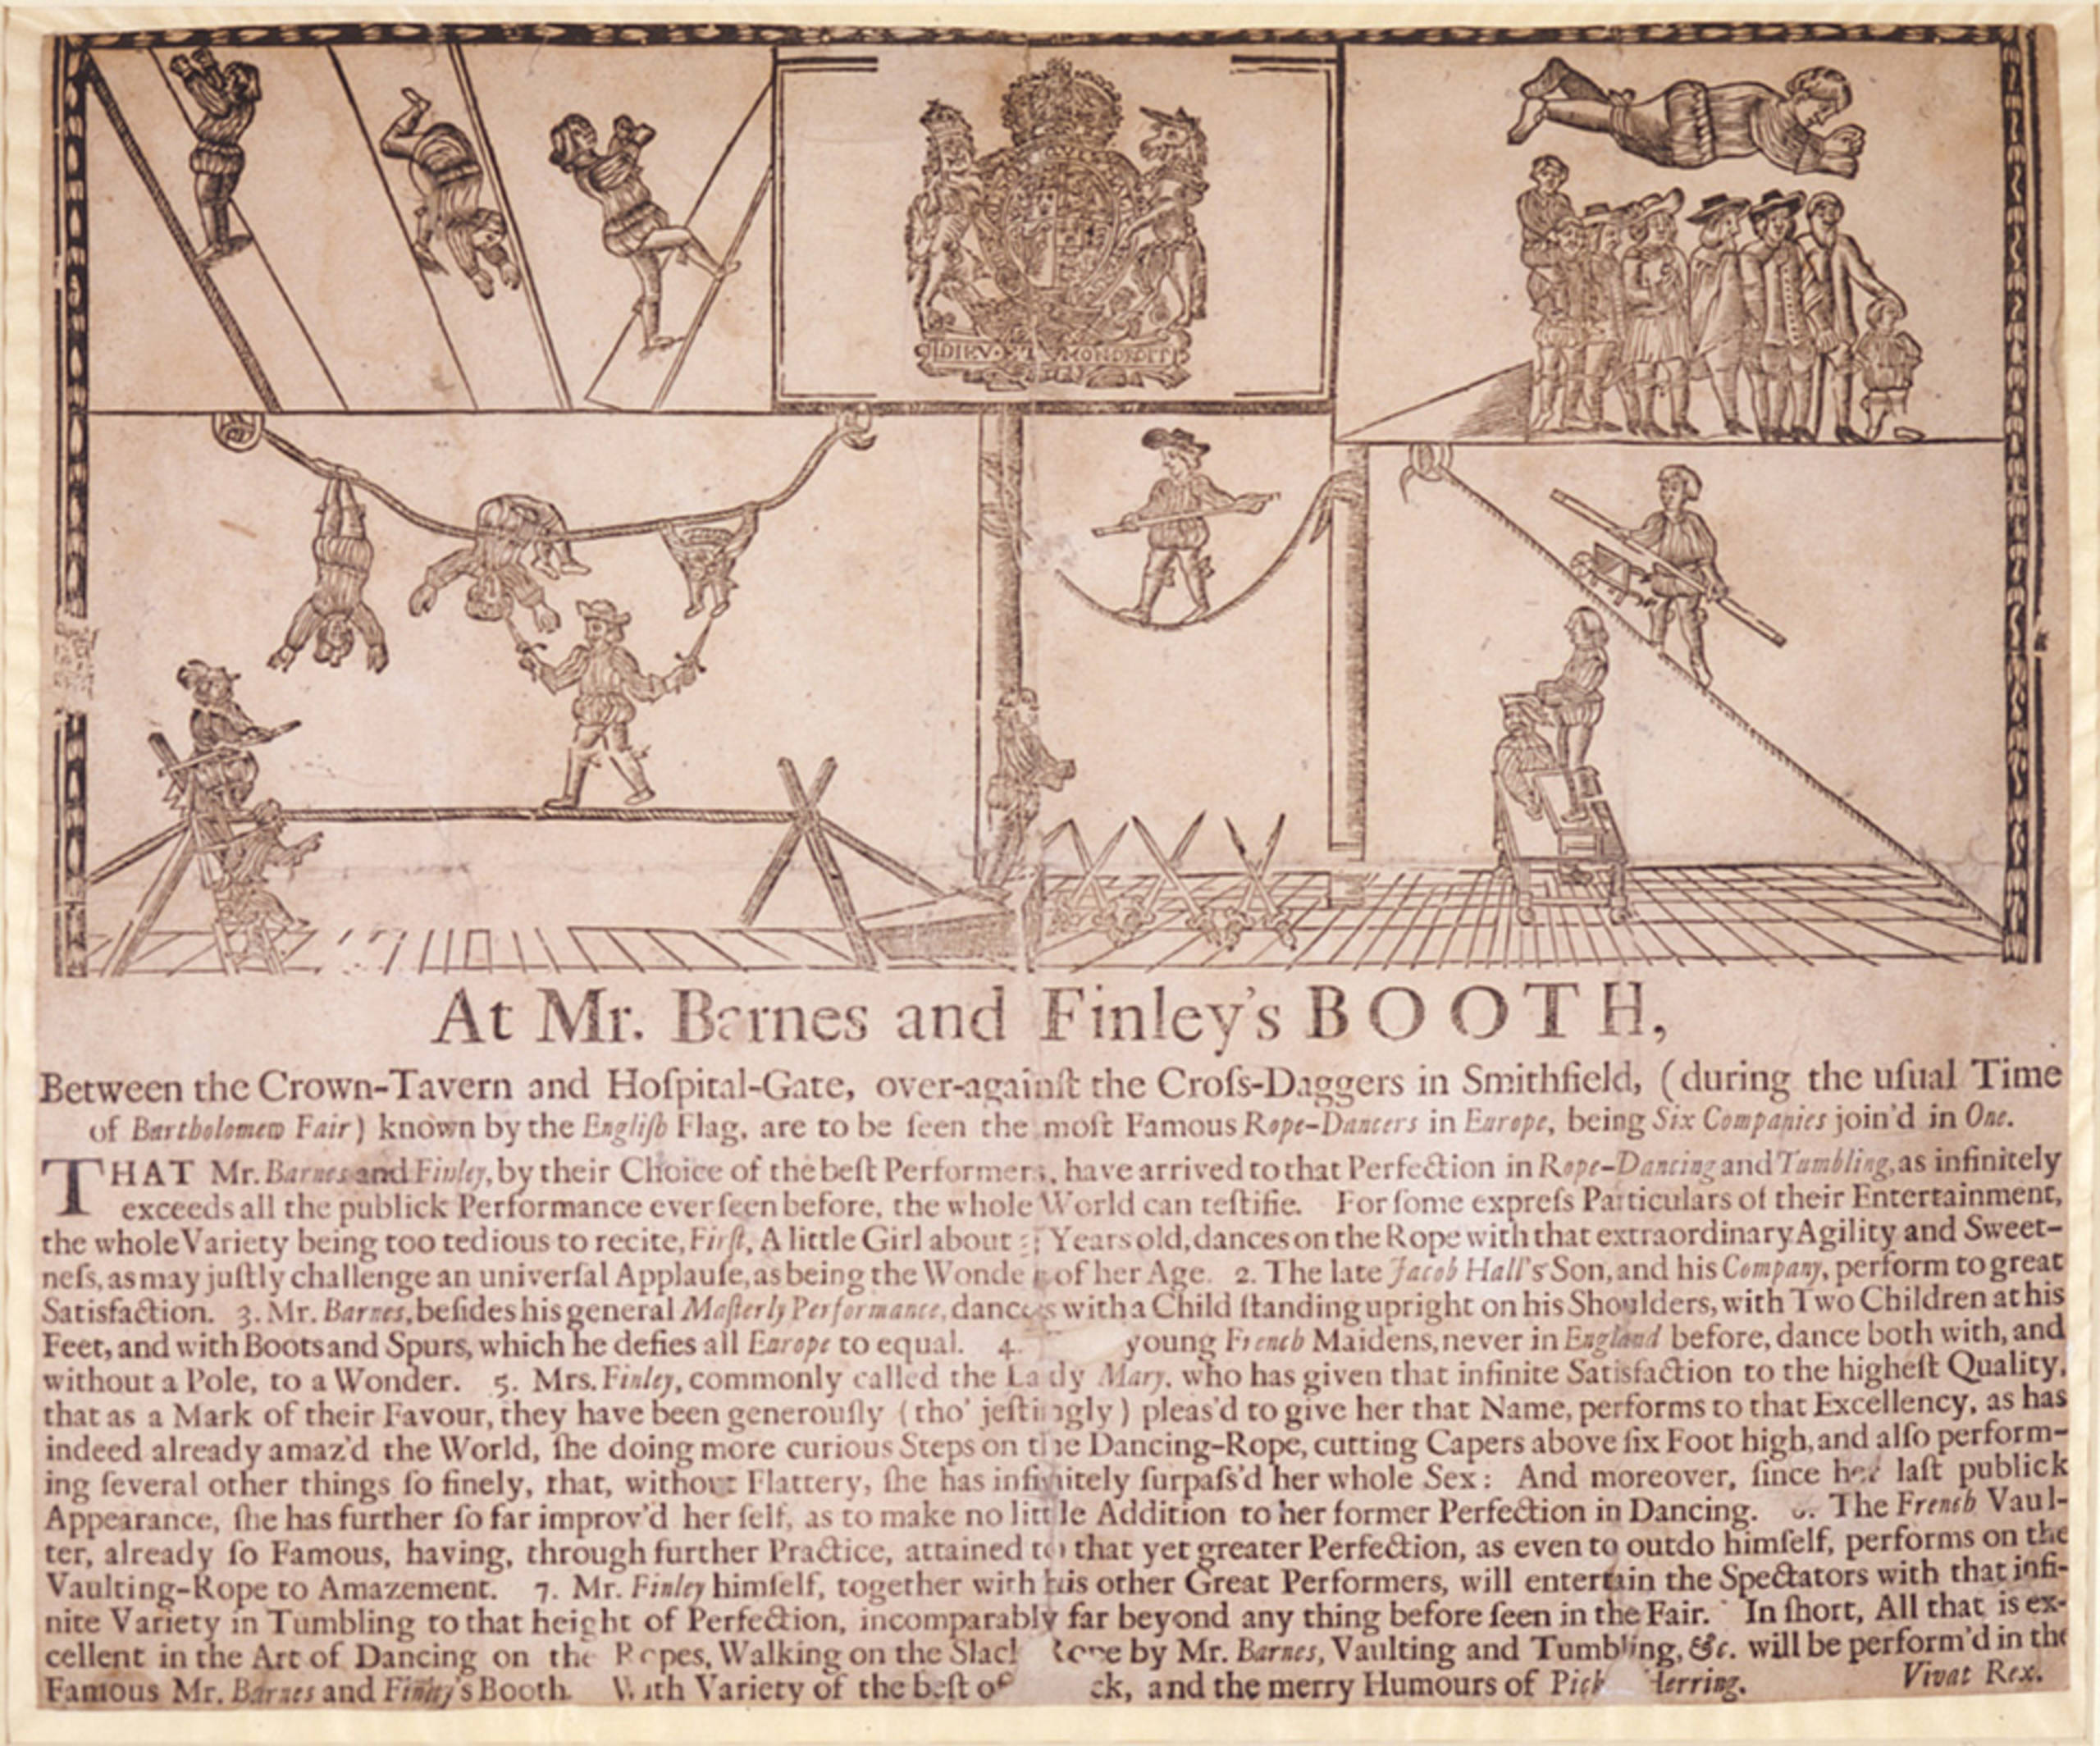 DIEV · ET MON DROIT
At Mr. Barnes and Finley's BOOTH,
Between the Crown-Tavern and Hoſpital-Gate, over-againſt the Croſs-Daggers in Smithfield, (during the uſual Time
of Bartholomew Fair) known by the Engliſh Flag, are to be ſeen the moſt Famous Rope-Dancers in Europe, being Six Companies join'd in One.
THAT Mr. Barnes and Finley, by their Choice of the beſt Performers, have arrived to that Perfection in Rope-Dancing and Tumbling, as infinitely
exceeds all the publick Performance ever ſeen before, the whole World can teſtifie. For ſome expreſs Particulars of their Entertainment,
the whole Variety being too tedious to recite, Firſt, A little Girl about Years old, dances on the Rope with that extraordinary Agility and Sweet-
neſs, as may juſtly challenge an univerſal Applauſe, as being the Wonder of her Age. 2. The late Jacob Hall's Son, and his Company, perform to great
Satisfaction. 3. Mr. Barnes, beſides his general Maſterly Performance, dances with a Child ſtanding upright on his Shoulders, with Two Children at his
Feet, and with Boots and Spurs, which he defies all Europe to equal. 4. young French Maidens, never in England before, dance both with, and
without a Pole, to a Wonder. 5. Mrs. Finley, commonly called the Lady Mary, who has given that infinite Satisfaction to the higheſt Quality,
that as a Mark of their Favour, they have been generouſly (tho' jeſtingly) pleas'd to give her that Name, performs to that Excellency, as has
indeed already amaz'd the World, ſhe doing more curious Steps on the Dancing-Rope, cutting Capers above ſix Foot high, and alſo perform-
ing ſeveral other things ſo finely, that, without Flattery, ſhe has infinitely ſurpaſs'd her whole Sex: And moreover, ſince her laſt publick
Appearance, ſhe has further ſo far improv'd her ſelf, as to make no little Addition to her former Perfection in Dancing. 6. The French Vaul-
ter, already ſo Famous, having, through further Practice, attained to that yet greater Perfection, as even to outdo himſelf, performs on the
Vaulting-Rope to Amazement. 7. Mr. Finley himſelf, together with his other Great Performers, will entertain the Spectators with that infi-
nite Variety in Tumbling to that height of Perfection, incomparably far beyond any thing before ſeen in the Fair. In ſhort, All that is ex-
cellent in the Art of Dancing on the Ropes, Walking on the Slack Rope by Mr. Barnes, Vaulting and Tumbling, &c. will be perform'd in the
Famous Mr. Barnes and Finley's Booth. With Variety of the beſt of and the merry Humours of Pick Herring. Vivat Rex.